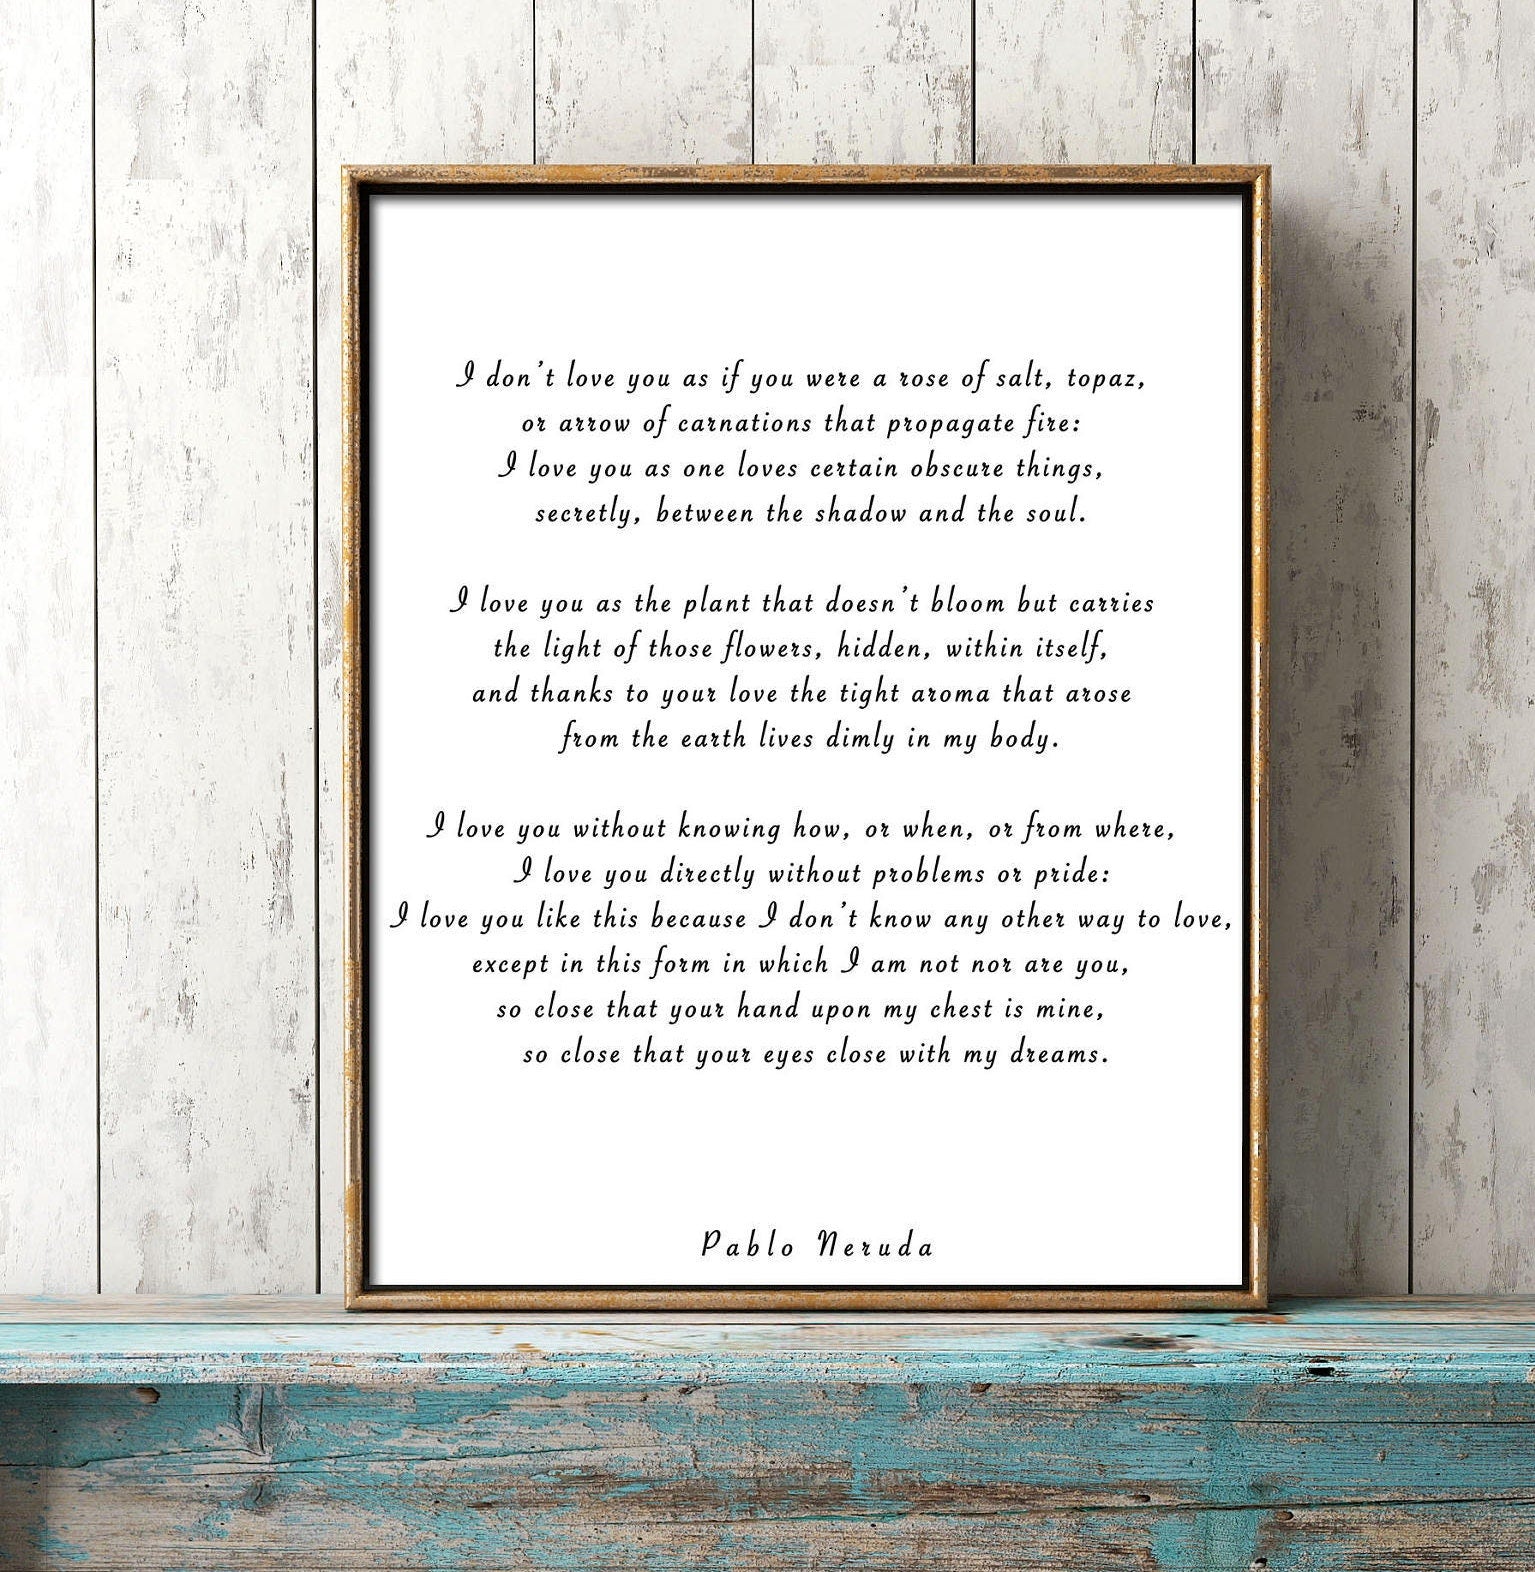 I don't love you as if you were a rose of salt, topaz,
or arrow of carnations that propagate fire:
I love you as one loves certain obscure things,
secretly, between the shadow and the soul.
I love you as the plant that doesn't bloom but carries
the light of those flowers, hidden, within itself,
and thanks to your love the tight aroma that arose
from the earth lives dimly in my body.
I love you without knowing how, or when, or from where,
I love you directly without problems or pride:
I love you like this because I don't know any other way to love,
except in this form in which I am not nor are you,
so close that your hand upon my chest is mine,
so close that your eyes close with my dreams.
Pablo Neruda